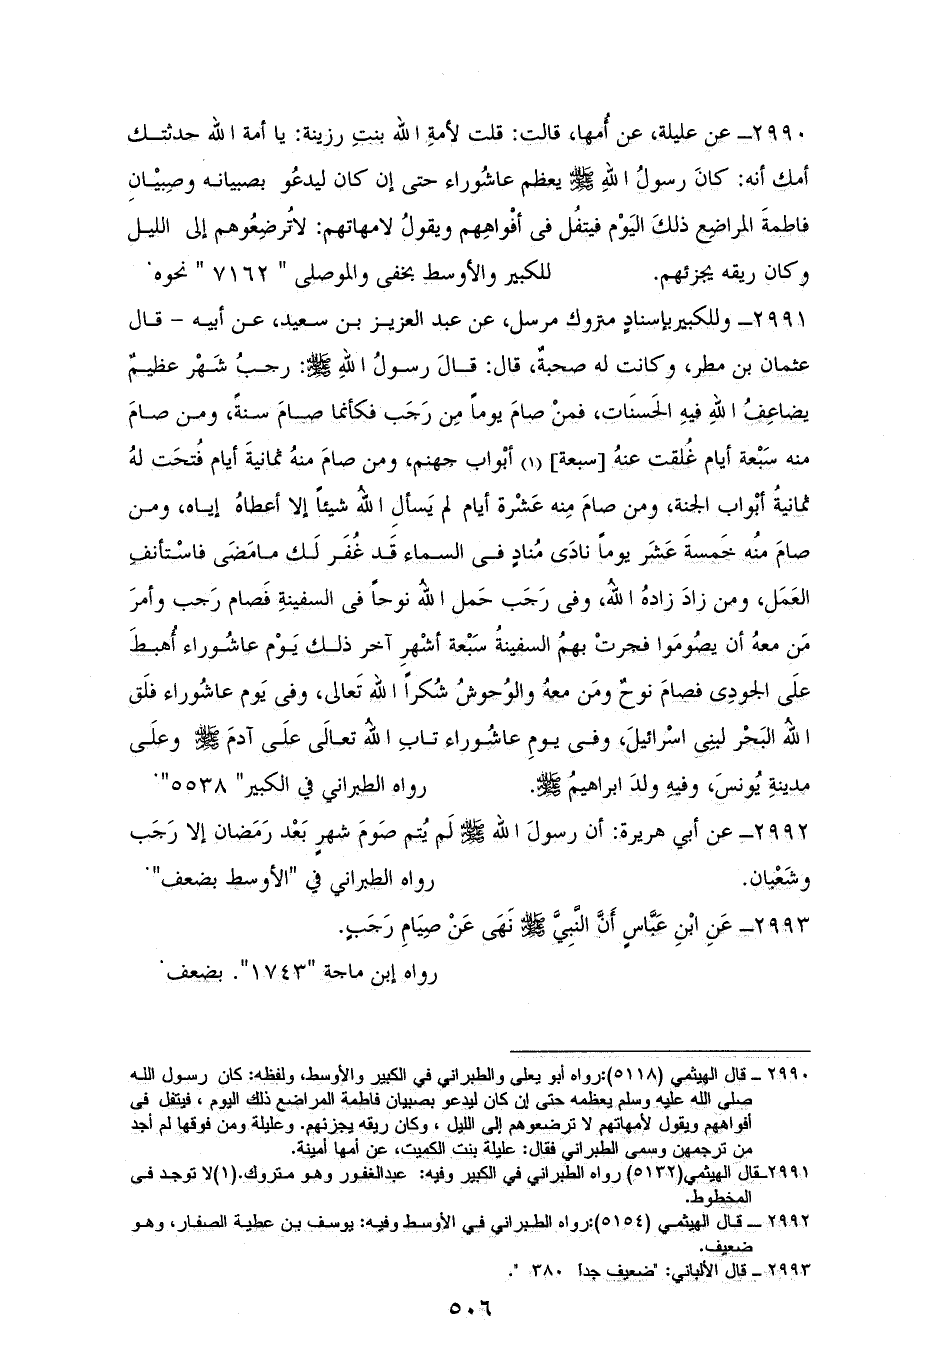 ٢٩٩٠ــ عن عليلة، عن أُمها، قالت: قلت لأمةِ اللهِ بنتِ رزينة: يا أمة الله حدثتــك
أمك أنه: كانَ رسولُ اللهِ ﷺ يعظم عاشوراء حتى إن كان ليدعُو بصبيانه وصِبْيْانِ
فاطمةَ المراضِع ذلكَ اليَوْم فيتفُل فى أفْواهِهم ويقولُ لامهاتهم: لاتُرضِعُوهم إلى الليل
وكان ريقه يجزئهم. للكبير والأوسط بخفى والموصلى " ٧١٦٢ " نحوه.
٢٩٩١ــ وللكبير بإسنادٍ متروك مرسل، عن عبد العزيز بـن سـعيد، عـن أبيـه – قـال
عثمان بن مطر، وكانت له صحبةٌ، قال: قـالَ رسـولُ اللهِ ﷺ: رجـبُ شَهْر عظيـمٌ
يضاعِفُ اللهُ فيهِ الحَسنَات، فمنْ صامَ يوماً مِن رَجَب فكأنما صـامَ سنةً، ومـن صـامَ
منه سَبْعة أيام غُلقت عنهُ [سبعة] (١) أبْواب جهنم، ومن صامَ منهُ ثمانيةَ أيام فُتحَت لهُ
ثمانيةُ أبْواب الجنة، ومن صامَ مِنه عَشْرة أيام لم يَسألِ اللهَ شيئاً إلا أعطاهُ إيـاه، ومـن
صامَ مِنُه خَمسةَ عَشَر يوماً نادَى مُنادٍ فـى السـماء قَـد غُفَـر لَـك مـامَضَى فاسْـتأنفِ
العَمَل، ومن زادَ زادهُ اللهُ، وفى رَجَب حَمل اللهُ نوحاً فى السفينةِ فَصام رَجب وأمرَ
مَن معهُ أن يصُومَوا فجرتْ بهمُ السفينةُ سَبْعة أشْهرٍ آخر ذلـك يَـوْم عاشُـوراء أُهبـطَ
علَى الجودِى فصامَ نوحٌ ومَن معهُ والوُحوشُ شُكراً اللهِ تَعالى، وفى يَوم عاشُوراء فلَق
اللهُ البَحْر لبنِى اسْرائيلَ، وفـى يـومِ عاشُـوراء تـابِ اللهُ تعالَى علَـى آدمَ ﷺ وعلَـى
مدينةِ يُونسَ، وفيهِ ولدَ ابراهيمُ ﷺ. رواه الطبراني في الكبير" ٥٥٣٨".
٢٩٩٢ــ عن أبي هريرة: أن رسولَ اللهِ ﷺ لَم يُتم صَومَ شهرٍ بَعْد رَمَضان إلا رَجَب
وشَعْبان. رواه الطبراني في "الأوسط بضعف".
٢٩٩٣ــ عَنِ ابْنِ عَبَّاسٍ أَنَّ النَّبِيَّ ﷺ نَهَى عَنْ صِيَامِ رَجَبٍ.
رواه إبن ماجة "١٧٤٣". بضعف.
٢٩٩٠ ــ قال الهيثمي (٥١١٨):رواه أبو يعلى والطبراني في الكبير والأوسط، ولفظه: كان رسول الله
صلى الله عليه وسلم يعظمه حتى إن كان ليدعو بصبيان فاطمة المراضع ذلك اليوم ، فيتفل فى
أفواههم ويقول لأمهاتهم لا ترضعوهم إلى الليل ، وكان ريقه يجزئهم. وعليلة ومن فوقها لم أجد
من ترجمهن وسمى الطبراني فقال: عليلة بنت الكميت، عن أمها أمينة.
٢٩٩١ــقال الهيثمي(٥١٣٢) رواه الطبراني في الكبير وفيه: عبدالغفور وهـو متروك.(١)لا توجد فـى
المخطوط.
٢٩٩٢ ــ قـال الهيثمـي (٥١٥٤):رواه الطبراني فـي الأوسط وفيه: يوسف بـن عطية الصفار، وهـو
ضعيف.
٢٩٩٣ ــ قال الألباني: "ضعيف جداً ٣٨٠ ".
٥٠٦